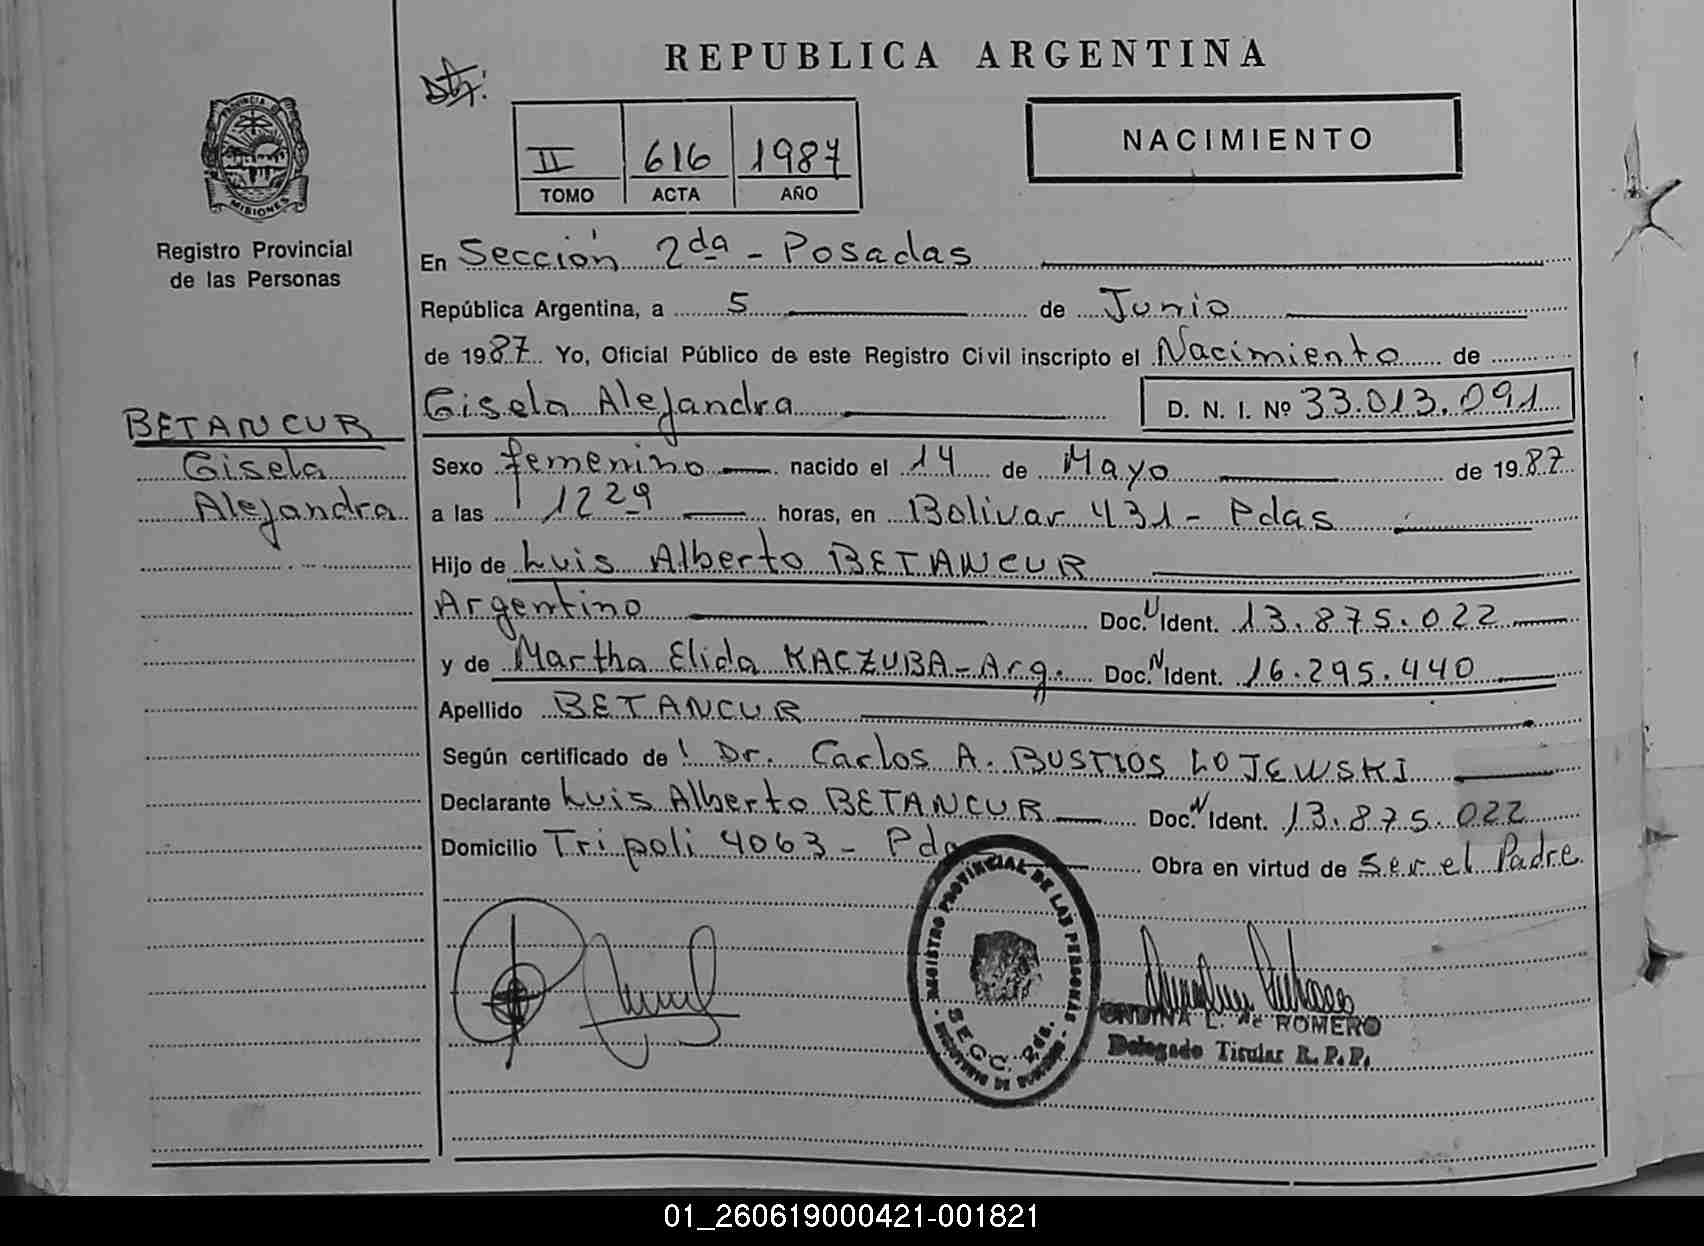 REPUBLICA ARGENTINA
II 616 1987
TOMO ACTA AÑO
NACIMIENTO
PROVINCIA DE
MISIONES
Registro Provincial
de las Personas
BETANCUR
Gisela
Alejandra
En Sección 2da - Posadas
República Argentina, a 5 de Junio
de 1987 Yo, Oficial Público de este Registro Civil inscripto el Nacimiento de
Gisela Alejandra D. N. I. Nº 33.013.091
Sexo femenino nacido el 14 de Mayo de 1987
a las 12 29 horas, en Bolivar 431 - Pdas
Hijo de Luis Alberto BETANCUR
Argentino Doc. Ident. 13.875.022
y de Martha Elida KACZUBA - Arg. Doc. N Ident. 16.295.440
Apellido BETANCUR
Según certificado de Dr. Carlos A. BUSTIOS LOJEWSKI
Declarante Luis Alberto BETANCUR Doc. N Ident. 13.875.022
Domicilio Tripoli 4063 - Obra en virtud de Ser el Padre
REGISTRO PROVINCIAL DE LAS PERSONAS
SECC. 2da.
ONDINA L. de ROMERO
Delegado Titular R. P. P.
01_260619000421-001821